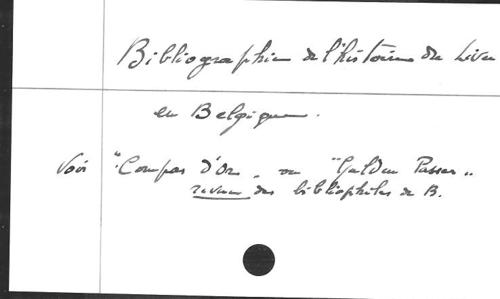 Bibliographie de l'histoire du Livre
en Belgique.
Voir "Compas d'Or" ou "Gulden Passer"
revue des bibliophiles de B.